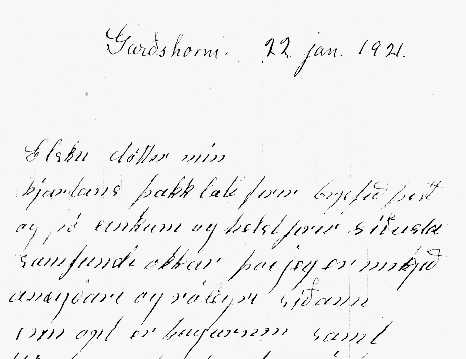 Garðshorni. 22 jan. 1921.
Elsku dóttir mín
hjartans þakklæti firir brjefið
og jó einkum og helst firir síðusta
samfundi okkar þvi jeg er mikið
anægðari og rólegri síðann
enn opt er hugurinn samt